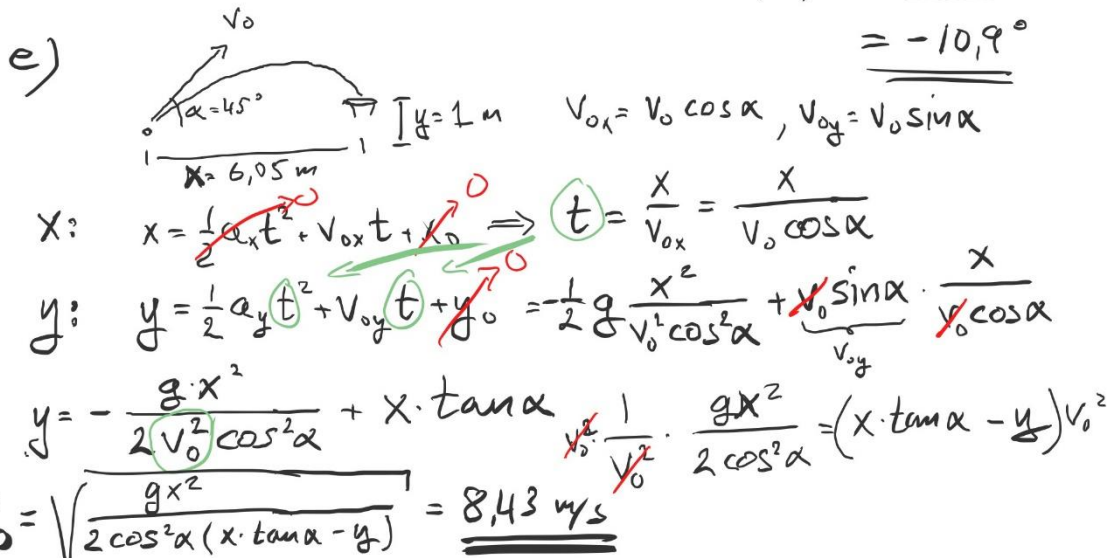 = -10,9°
e)
V₀
α=45°
y=1 m
x= 6,05 m
V₀ₓ = V₀ cosα , V₀y = V₀ sinα
x: x = ½ aₓt² + V₀ₓ t + x₀ ⟹ t = x/V₀ₓ = x/(V₀ cosα)
0 0
y: y = ½ a_y t² + V₀y t + y₀ = -½ g x²/(V₀² cos²α) + V₀ sinα · x/(V₀ cosα)
0
V₀y
y = - g·x²/(2 V₀² cos²α) + x· tanα
V₀² · 1/V₀² · gx²/(2 cos²α) = (x· tanα - y) V₀²
= √(gx²/(2 cos²α (x· tanα - y))) = 8,43 m/s